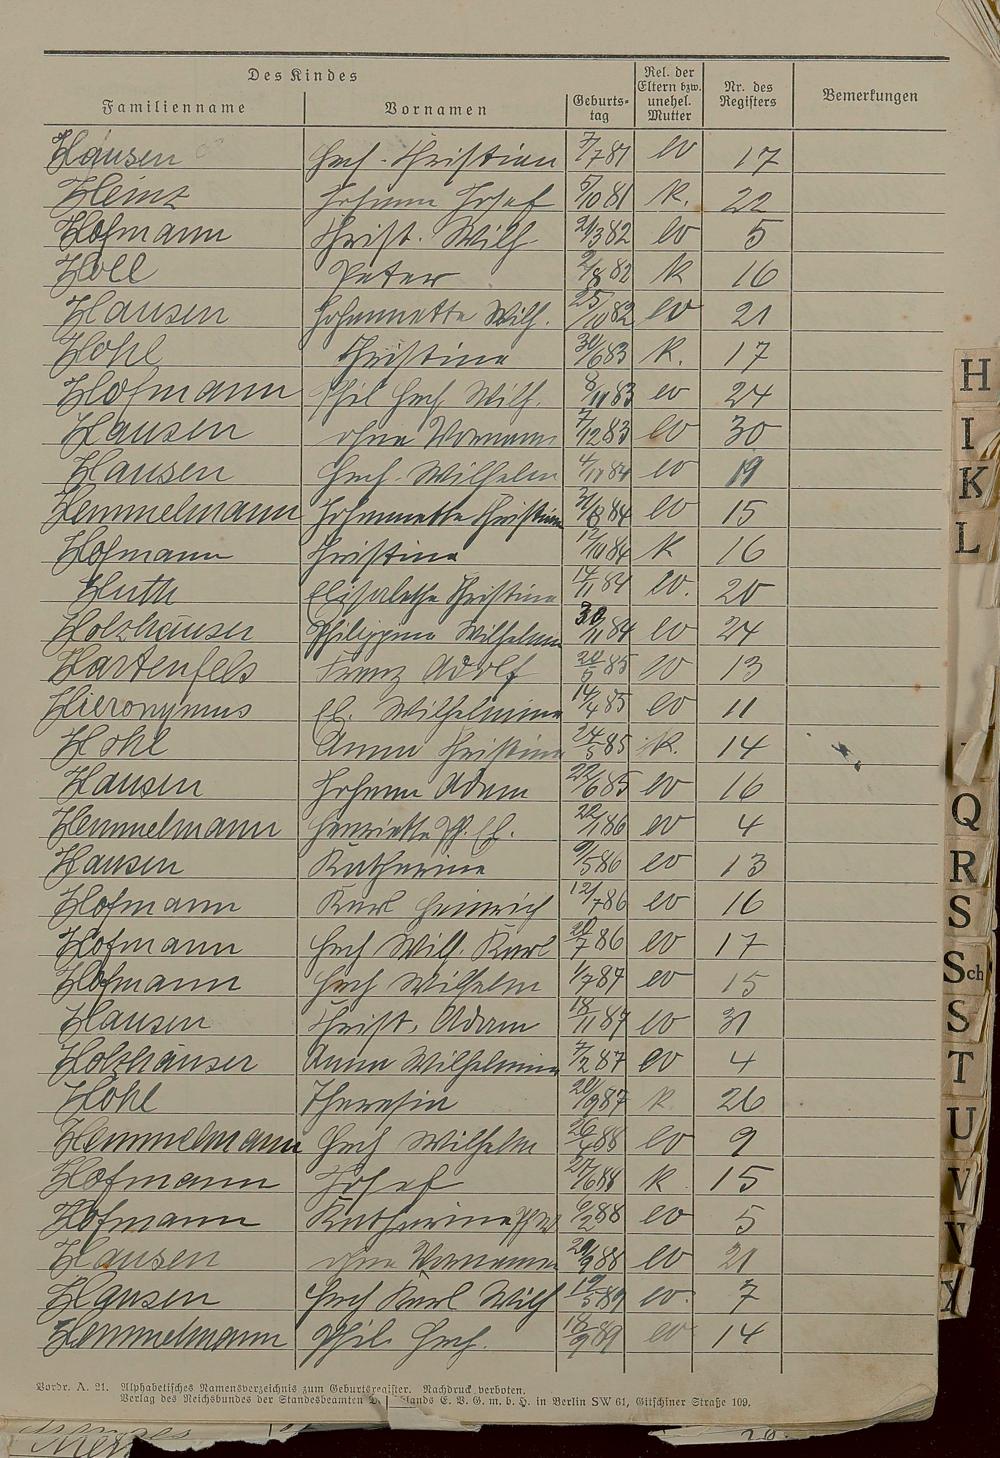 Des Kindes
Familienname Vornamen Geburts-tag Rel. der Eltern bzw. unehel. Mutter Nr. des Registers Bemerkungen
Hausen Hch. Christian 7/7 81 ev 17
Heinz Johann Josef 5/10 81 k. 22
Hofmann Christ. Wilh. 21/3 82 ev 5
Holl Peter 2/8 82 k 16
Hausen Johannette Wilh. 25/10 82 ev 21
Hohl Christina 30/6 83 k. 17
Hofmann Phil Hch Wilh. 8/11 83 ev 24
Hausen ohne Vornamen 7/12 83 ev 30
Hausen Hch. Wilhelm 4/11 84 ev 19
Hemmelmann Johannette Christine 84 ev 15
Hofmann Christina 12/10 84 k 16
Huth Elisabetha Christina 14/11 84 ev. 20
Holzhäuser Philippine Wilhelmine 30/11 84 ev 24
Hartenfels Franz Adolf 20/5 85 ev 13
Hieronymus El. Wilhelmine 14/4 85 ev 11
Hohl Anna Christina 24/5 85 k. 14
Hausen Johann Adam 22/6 85 ev 16
Hemmelmann Henriette Ph. El. 22/1 86 ev 4
Hausen Katharine 9/5 86 ev 13
Hofmann Karl Heinrich 12/7 86 ev 16
Hofmann Hch Wilh. Karl 20/7 86 ev 17
Hofmann Hch Wilhelm 1/7 87 ev 15
Hausen Christ. Adam 18/11 87 ev 31
Holzhäuser Anna Wilhelmine 7/2 87 ev 4
Hohl Theresia 20/9 87 k. 26
Hemmelmann Hch Wilhelm 26/4 88 ev 9
Hofmann Josef 27/6 88 k 15
Hofmann Katharine Ph W. 6/2 88 ev 5
Hausen ohne Vornamen 29/9 88 ev 21
Hausen Hch Karl Wilh 19/5 89 ev. 7
Hemmelmann Phil. Hch. 18/9 89 ev 14
Vordr. A. 21. Alphabetisches Namensverzeichnis zum Geburtsregister. Nachdruck verboten.
Verlag des Reichsbundes der Standesbeamten E. V. G. m. b. H. in Berlin SW 61, Gitschiner Straße 109.
H
I
K
L
Q
R
S
Sch
S
T
U
V